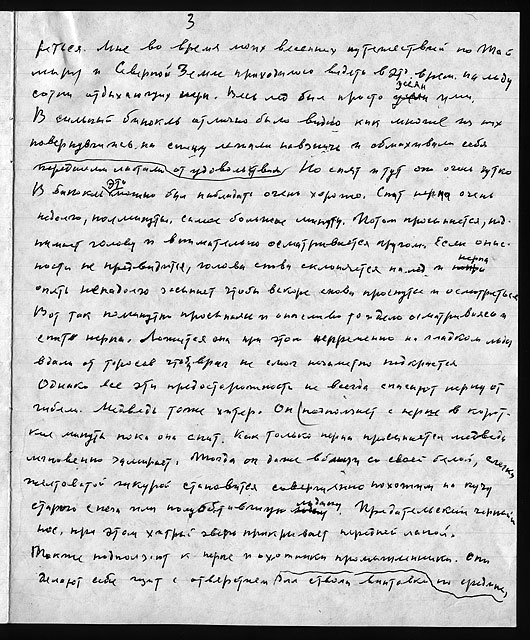 3
реться. Мне во время моих весенних путешествий по Тай
миру и Северной Земле приходилось видеть в это врем. на льду
сотни отдыхающих нерп. Весь лед был просто усеян ими.
В сильный бинокль отлично было видно как многие из них
повернувшись на спину лежали навзничь и обмахивали себя
передними ластами от удовольствия. Но спят и тут они очень чутко
В бинокль это можно был наблюдать очень хорошо. Спит нерпа очень
недолго, полминуты, самое большее минуту. Потом просыпается, под-
нимает голову и внимательно осматривается кругом. Если опас-
ности не предвидится, голова снова склоняется на лед и нерпа
опять ненадолго засыпает чтобы вскоре снова проснуться и осмотреться
Вот так поминутно просыпаясь и опасливо то и дело осматриваясь и
спит нерпа. Ложится она при этом непременно на гладком льду
вдали от торосов чтоб враг не смог незаметно подкрасться
Однако все эти предосторожности не всегда спасают нерпу от
гибели. Медведь тоже хитер. Он подползает к нерпе в корот-
кие минуты пока она спит. Как только нерпа просыпается медведь
мгновенно замирает. Тогда он даже вблизи со своей белой, слегка
желтоватой шкурой становится совершенно похожим на кучу
старого снега или льдину. Предательский черный
нос, при этом хитрый зверь прикрывает передней лапой.
Также подползают к нерпе и охотники промышленники. Они
делают себе щит с отверстием для ствола винтовки по средине,